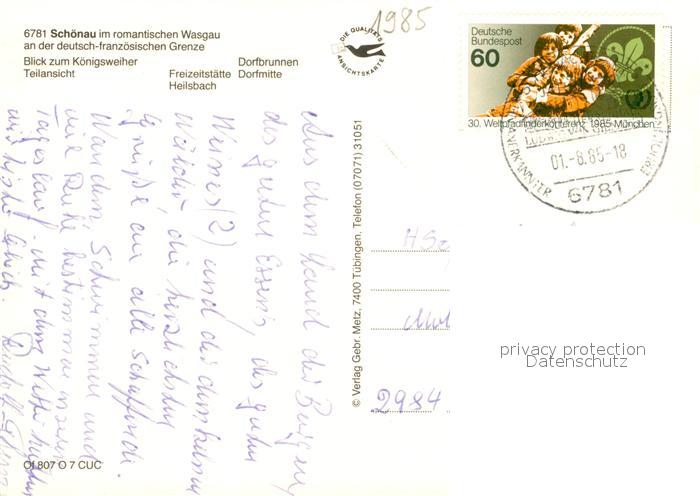 1985
6781 Schönau im romantischen Wasgau
an der deutsch-französischen Grenze
Blick zum Königsweiher
Teilansicht
Freizeitstätte
Heilsbach
Dorfbrunnen
Dorfmitte
DIE QUALITÄTS
ANSICHTSKARTE
Deutsche
Bundespost
60
30. Weltpfadfinderkonferenz 1985 München
ANERKANNTER
ERHOLUNGSORT
01.-8.85-18
6781
Aus dem Land der Burgen,
des guten Essens, des guten
Weines (2) und der dunklen
Wälder, die herzlichsten
Grüße an alle Schaffende.
Wandern, Schwimmen und
viel Ruhe bestimmen unseren
Tageslauf. mit dem Wetter
© Verlag Gebr. Metz, 7400 Tübingen, Telefon (07071) 31051
2984
OI 807 O 7 CUC
privacy protection
Datenschutz